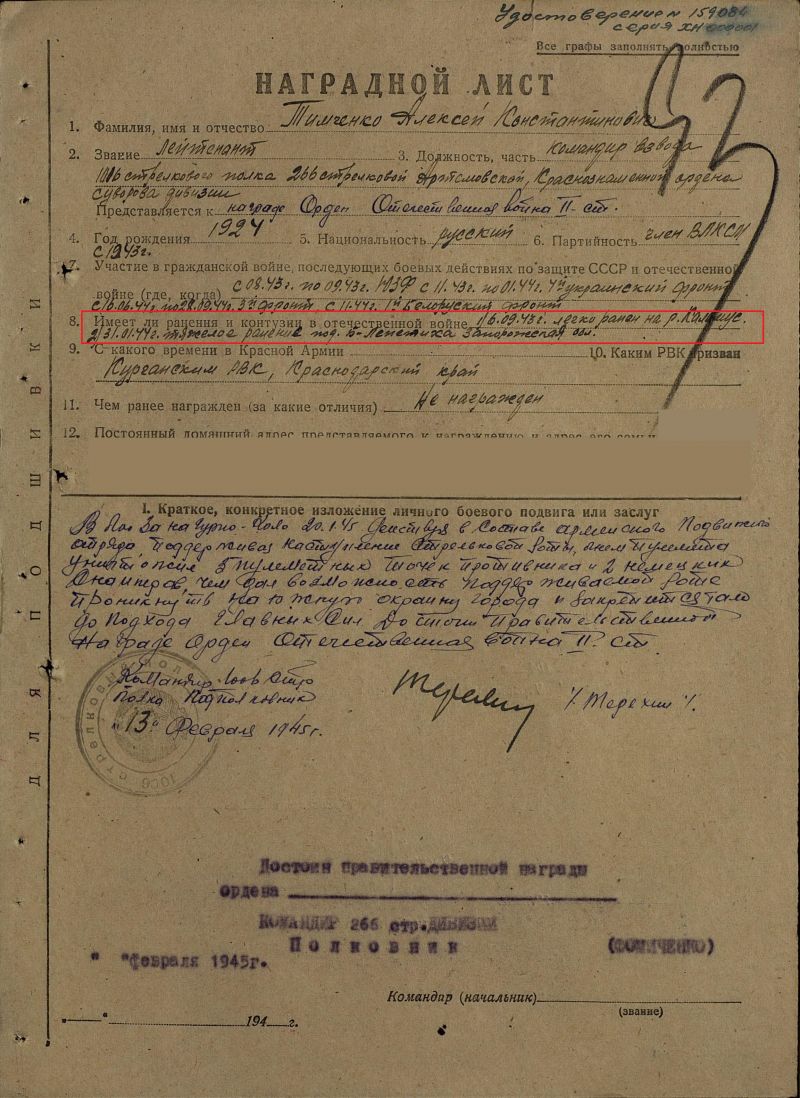 Удостоверение № 159084
серия ХН
Все графы заполнять полностью
НАГРАДНОЙ ЛИСТ
1. Фамилия, имя и отчество Тимченко Алексей Константинович
2. Звание Лейтенант 3. Должность, часть командир взвода
стрелкового полка 266 стрелковой Артемовской, Краснознаменной ордена
Суворова дивизии
Представляется к награде Орден Отечественная война II ст.
4. Год рождения 1924 5. Национальность русский 6. Партийность член ВЛКСМ
с 1943г.
7. Участие в гражданской войне, последующих боевых действиях по защите СССР и отечественной
войне (где, когда) с 08.43г. по 09.43г. ЮФ с 11.43г. по 01.44г. 4й украинский фронт
с 16.06.44г. по 28.09.44г. 3й фронт, с 11.44г. 1й Белоруский фронт
8. Имеет ли ранения и контузии в отечественной войне 1) 6.09.43г. легко ранен на р. Калмиус
2) 31.01.44г. тяжелое ранение под. Б-Лепетиха Запорожская обл.
9. С какого времени в Красной Армии 10. Каким РВК призван
Курганским РВК, Краснодарский край
11. Чем ранее награжден (за какие отличия) Не награжден
12. Постоянный домашний адрес представляемого к награждению и адрес его семьи
I. Краткое, конкретное изложение личного боевого подвига или заслуг
В бою за 20.1.45 действуя в составе армейского подвижного
отряда, поддерживая наступление стрелковой роты, огнем пулемета
уничтожил 5 пулеметных точек противника и 2 немецких
снайперов чем дал возможность поддерживаемой роте
проникнуть на южную окраину города и закрепится там
до подхода главных сил. Достоин правительственной
награде Орден Отечественная война II ст.
Командир 1008 стр
полка подполковник /Терехин/.
"13" февраля 1945г.
Достоин правительственной награды
ордена
КОМАНДИР 266 стр. ДИВИЗИИ
Полковник (ФОМИЧЕНКО)
" "февраля 1945г.
Командир (начальник)
(звание)
" " 194 г.
ДЛЯ ПОДШИВКИ